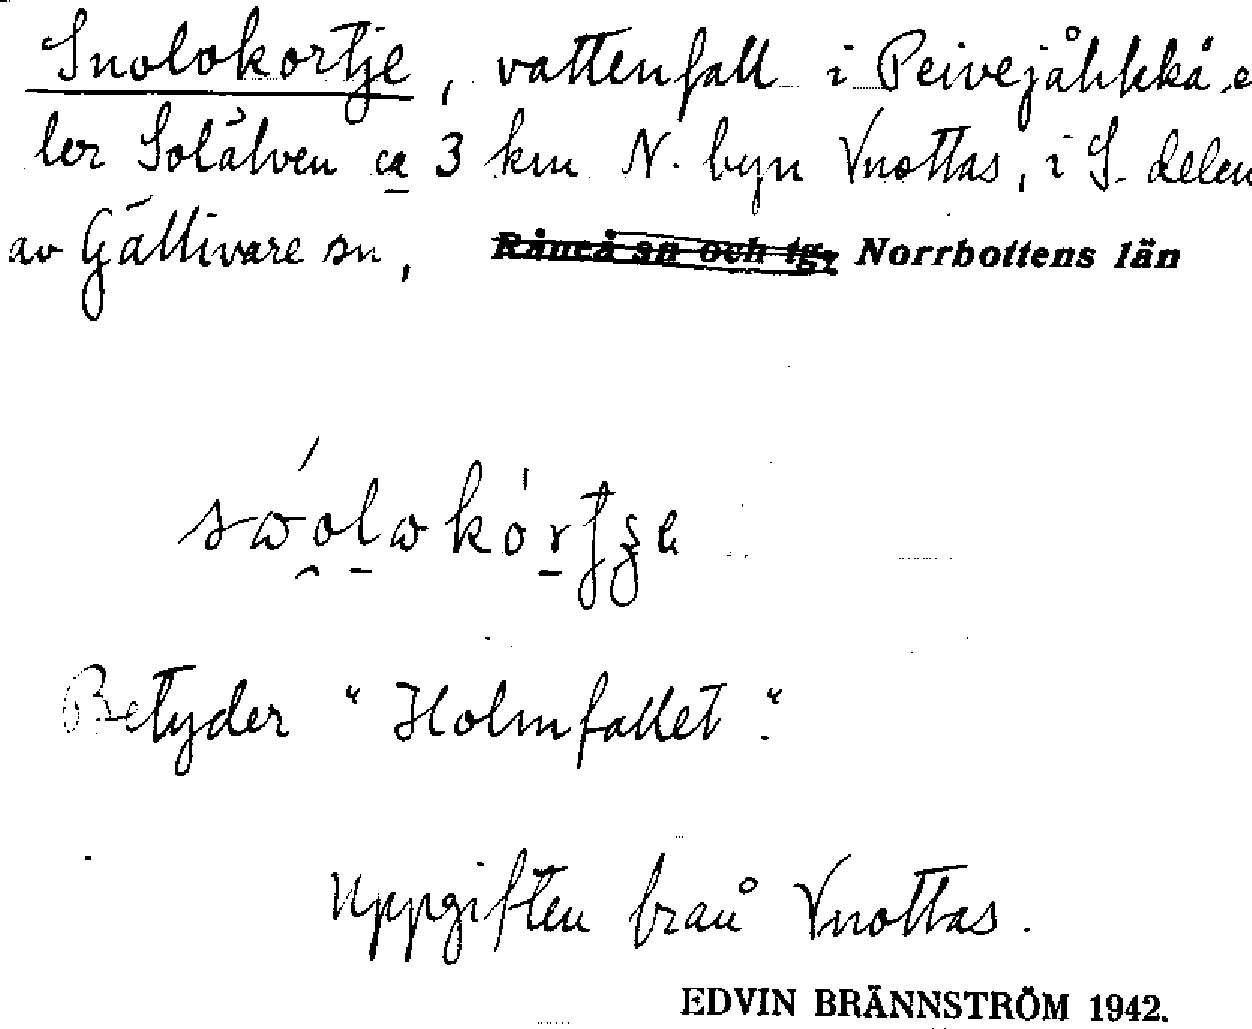 Suolokortje, vattenfall i Peivejåkkå e
ler Solälven ca 3 km N. byn Vuottas, i S. delen
av Gällivare sn, Råneå sn och tg, Norrbottens län
Betyder "Holmfallet".
Uppgiften från Vuottas.
EDVIN BRÄNNSTRÖM 1942.